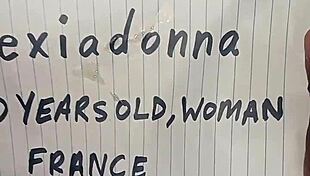 exiadonna
YEARS OLD, WOMAN
FRANCE